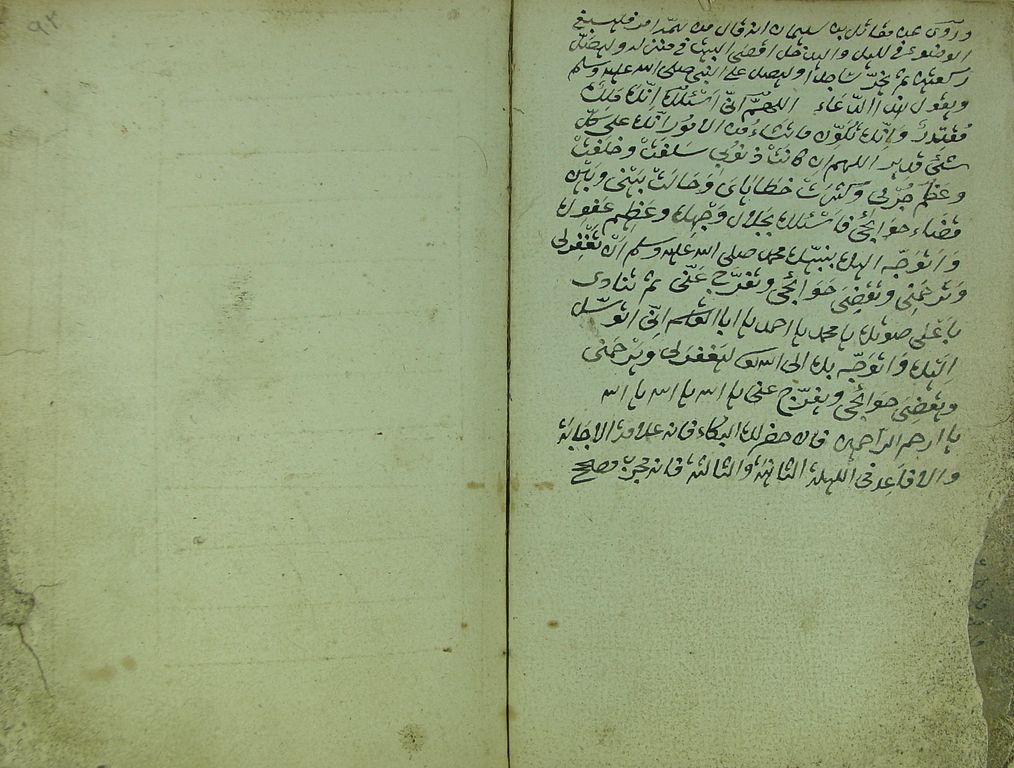 ٩٢
وروى عن مقاتل بن سليمان انه قال من اهمّه امر فليسبغ
الوضوء في الليل وليدخل اقصى البيت في منزله وليصل
ركعتين ثم يخرّ ساجدا وليصل على النبي صلى الله عليه وسلم
ويقول هذا الدّعاء اللهمّ انّي اسئلك انك ملك
مقتدرٌ وانّك تكوّن ما تشاء من الامور انك على كلّ
شئ قدير اللهم ان كانت ذنوبي سلفت وخلقت
وعظم جرمي وكثرت خطاياى وحالت بينى وبين
قضاء حوائجي فاسئلك بجلال وجهك وعظيم عفوك
واتوجّه اليك بنبيّك محمد صلى الله عليه وسلم ان تغفرلي
وترحمني وتقضي حوائجي وتفرّج عنّي ثم تنادى
باعلى صوتك يا محمد يا احمد يا ابا القسم انّي اتوسّل
اليك واتوجّه بك الى الله ليغفرلي ويرحمنى
ويقضى حوائجي ويفرّج عنى يا الله يا الله يا الله
يا ارحم الراحمين فان حضر لك البكاء فانه علامة الاجابة
والا فاعد في الليلة الثانية والثالثة فانه مجرّب صحيح